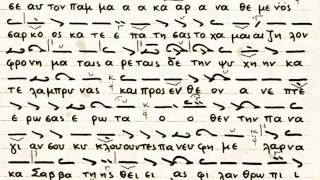 σε αυ τον παμ μα α α κα α ρ α να θε με νος
σαρκ ο ος κα τε ε πα τη σας το χα μαι αι ζη λον
φρονη μα ταις α ρε ταις δε την ψυ χην κα
τε λαμπρυ νας και προς εν θε ον α νε πτε
ε ρω σας ε ρω τα ο ο θεν την πα να
γι αν σου κυ κλουντες πανευ φη με λαρνα
κα Σαββα της θει ει ας φι λανθρω πι ι